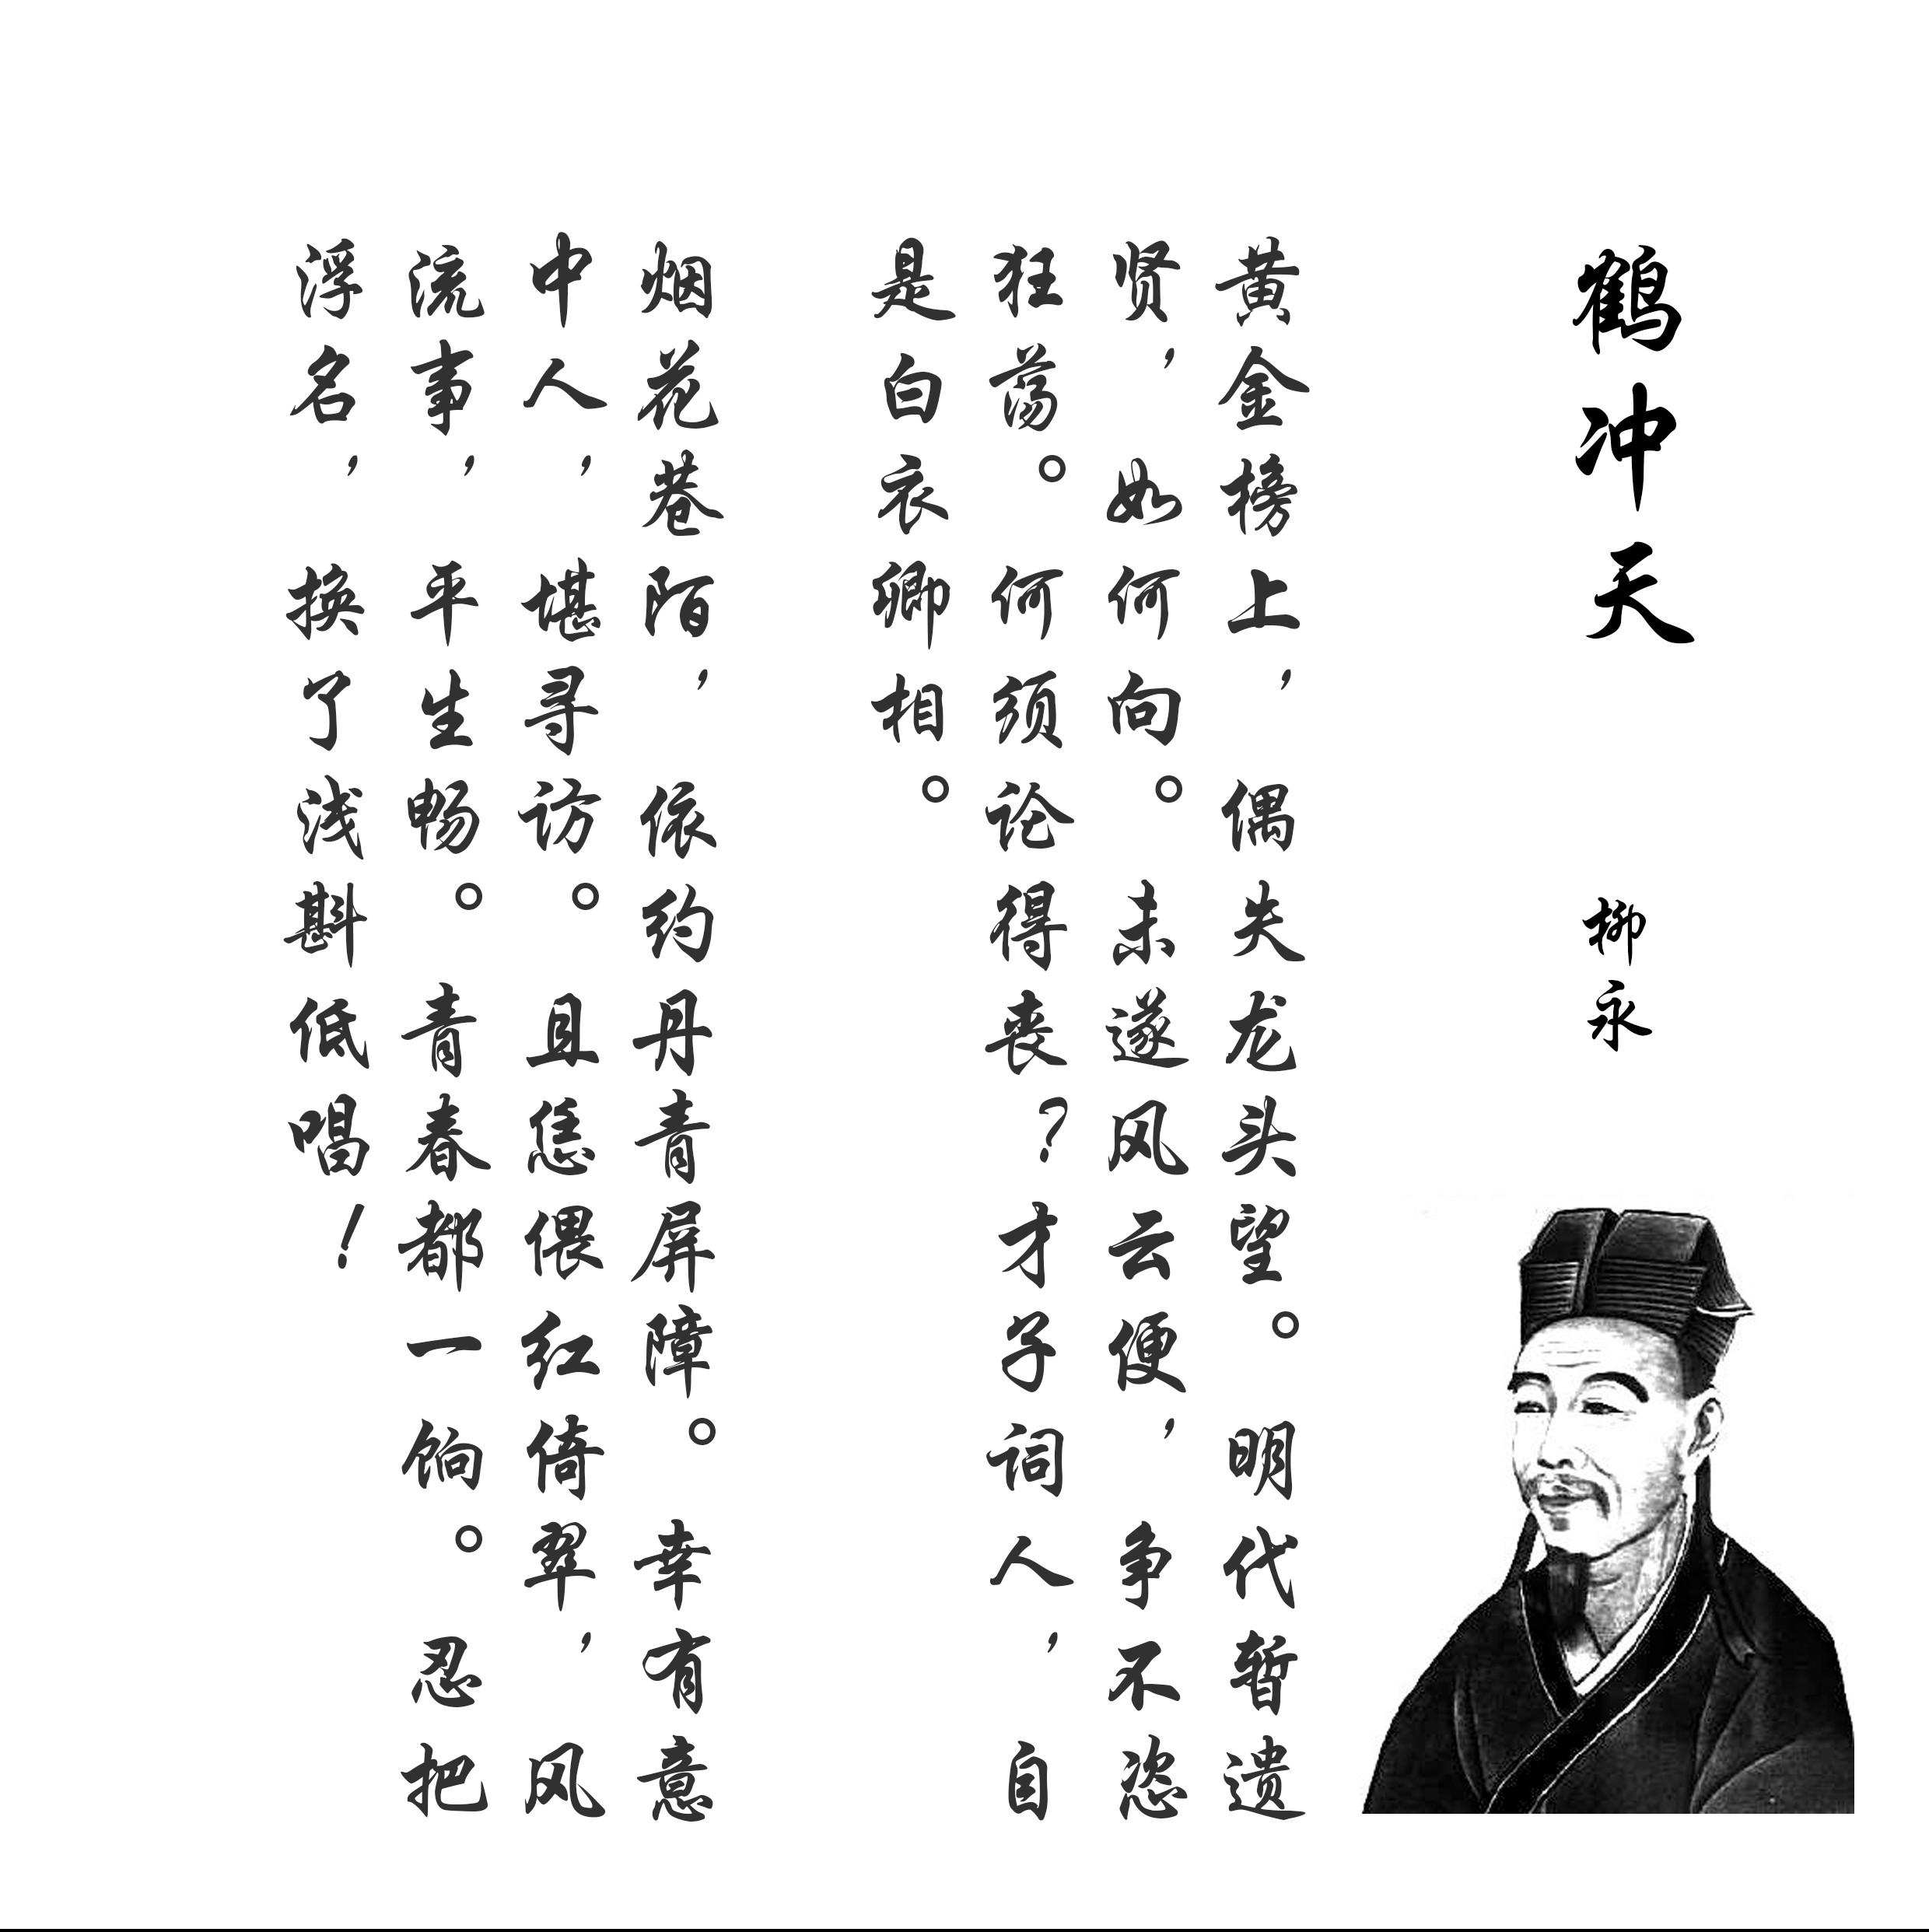 鹤冲天
柳永
黄金榜上，偶失龙头望。明代暂遗
贤，如何向。未遂风云便，争不恣
狂荡。何须论得丧？才子词人，自
是白衣卿相。
烟花巷陌，依约丹青屏障。幸有意
中人，堪寻访。且恁偎红倚翠，风
流事，平生畅。青春都一饷。忍把
浮名，换了浅斟低唱！